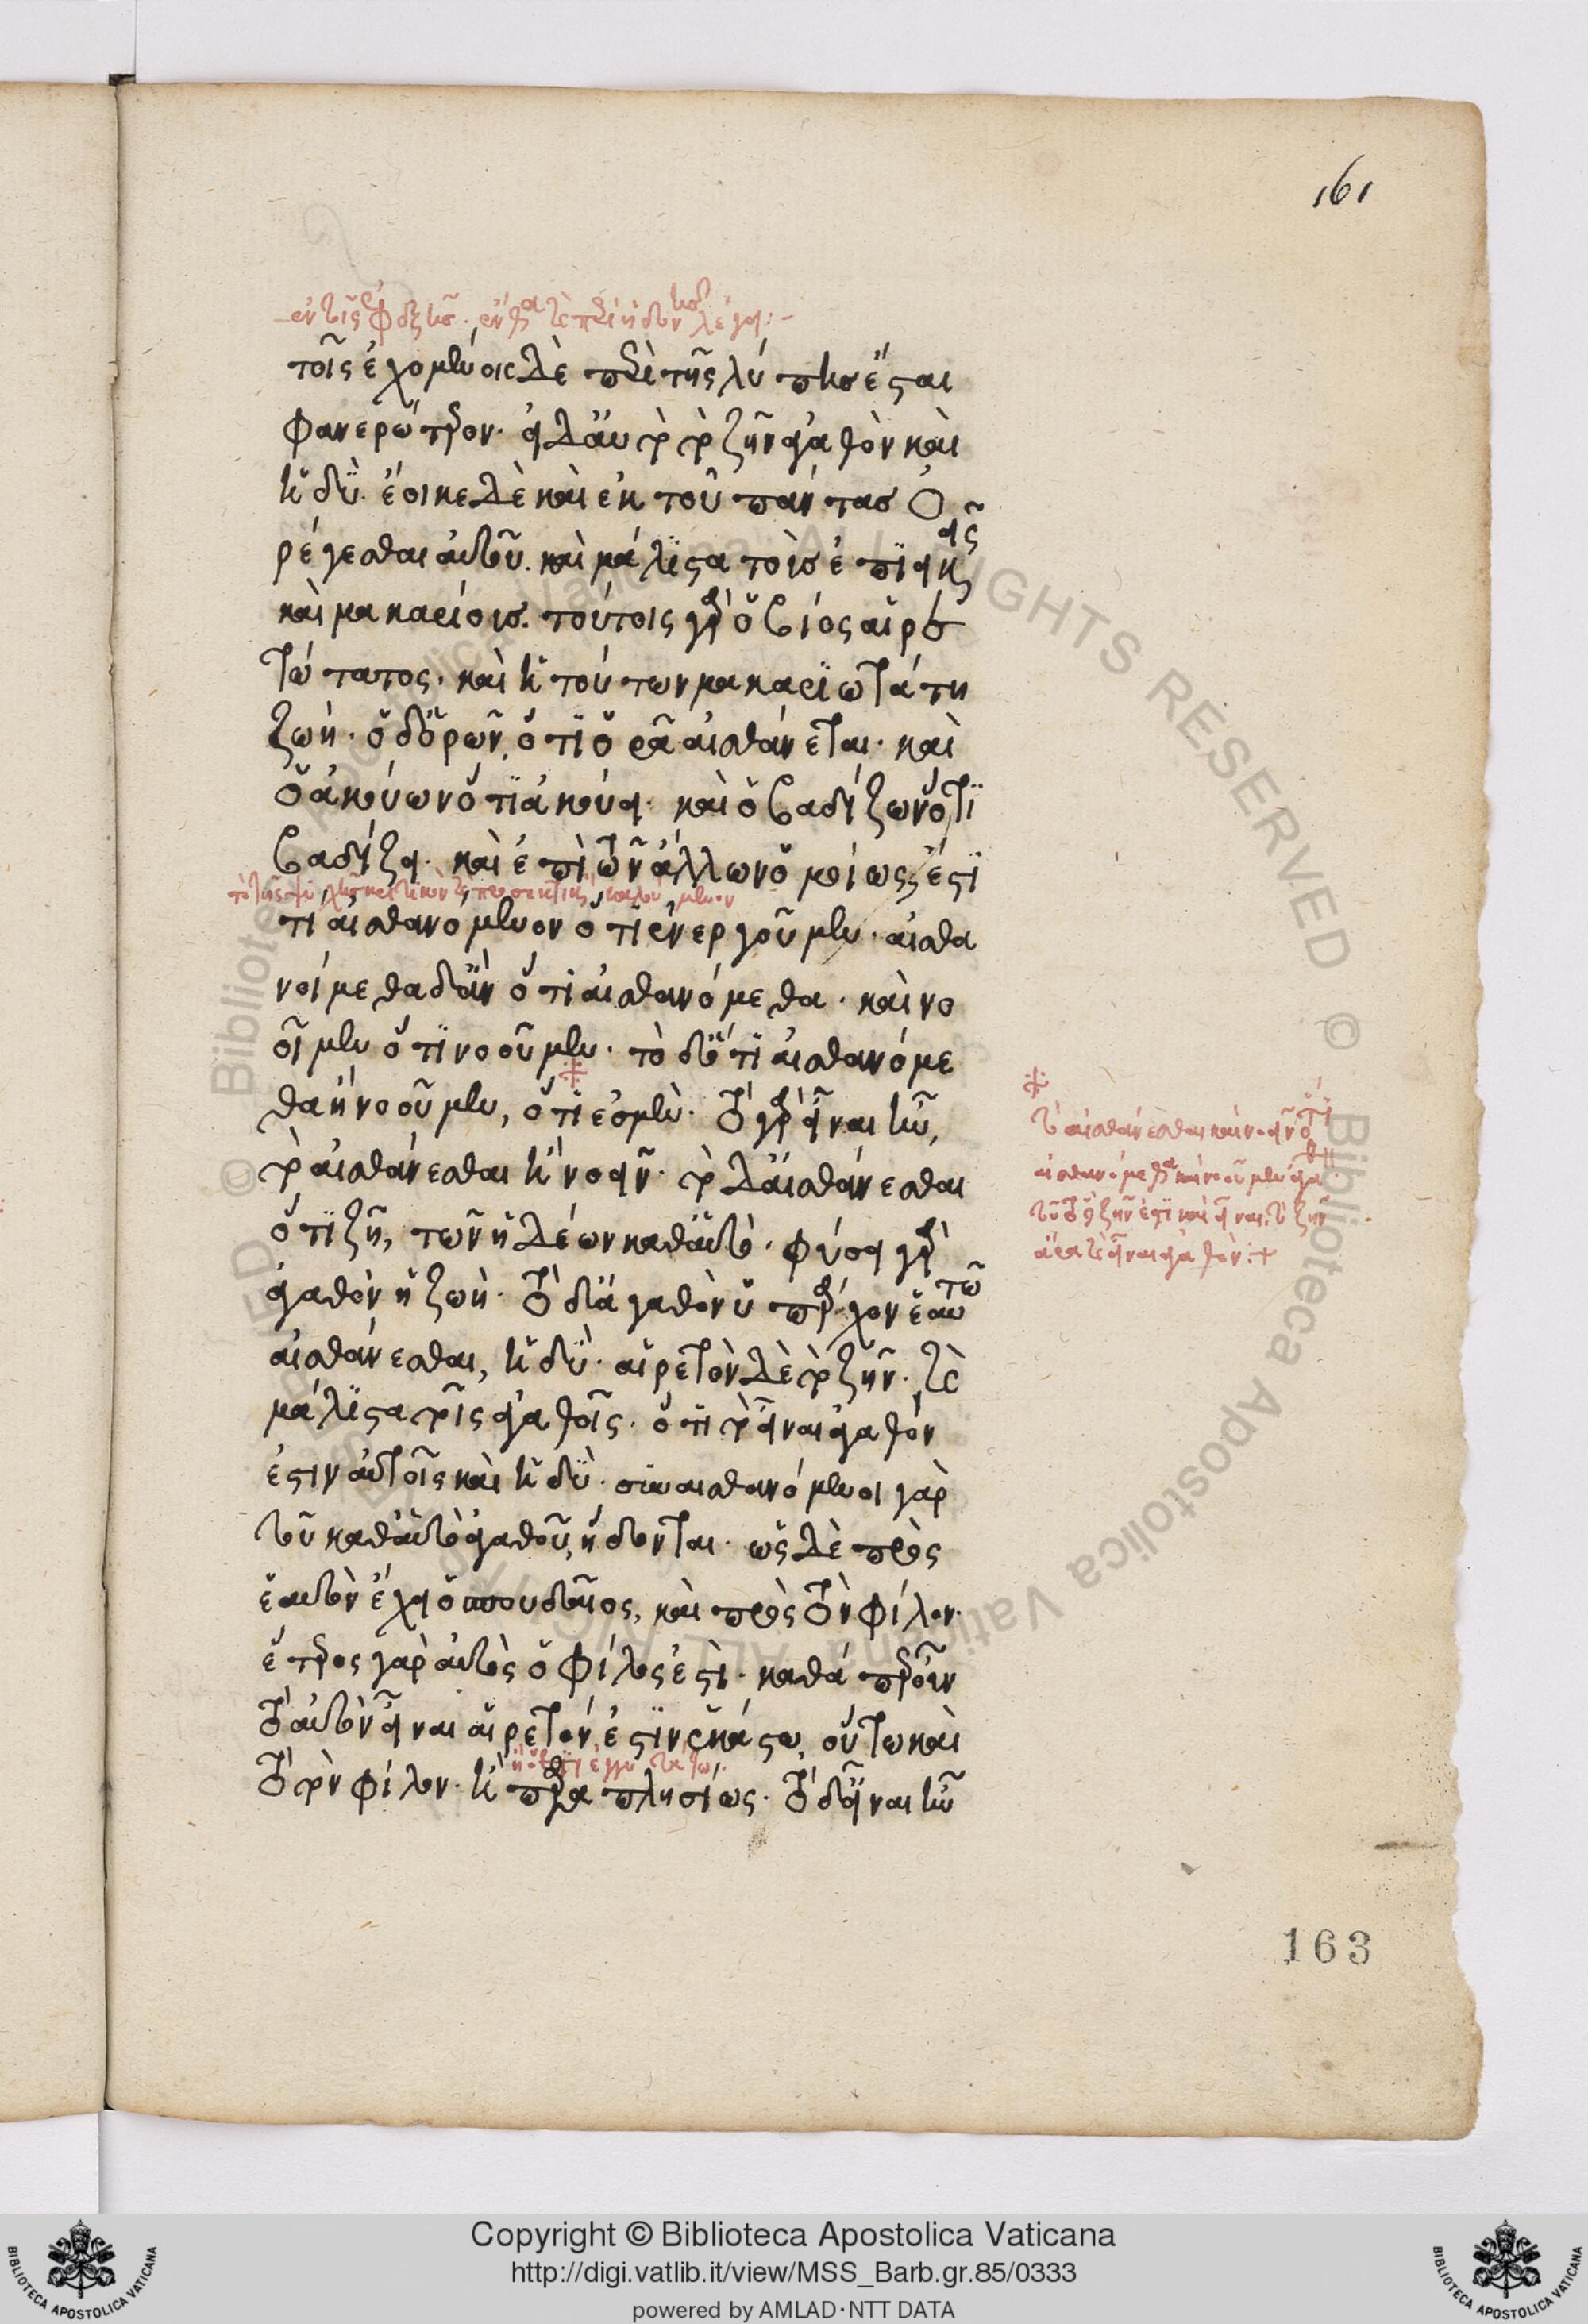 161
ἐν τοῖς ἐφεξῆς. ἔνθα καὶ περὶ ἡδονῆς λέγει:-
τοῖς ἐχομένοις δὲ περὶ τῆς λύπης ἔσται
φανερώτερον. εἰ δ' αὐτὸ τὸ ζῆν ἀγαθὸν καὶ
ἡδύ. ἔοικε δὲ καὶ ἐκ τοῦ πάντας ὀ
ρέγεσθαι αὐτοῦ. καὶ μάλιστα τοὺς ἐπιεικεῖς
καὶ μακαρίους. τούτοις γὰρ ὁ βίος αἱρε
τώτατος. καὶ ἡ τούτων μακαριωτάτη
ζωή. ὁ δ' ὁρῶν, ὅτι ὁρᾶ αἰσθάνεται. καὶ
ὁ ἀκούων ὅτι ἀκούει. καὶ ὁ βαδίζων ὅτι
βαδίζει. καὶ ἐπὶ τῶν ἄλλων ὁμοίως ἔστι
τι αἰσθανόμενον ὅτι ἐνεργοῦμεν. αἰσθα
νοίμεθα δ' ἂν ὅτι αἰσθανόμεθα. καὶ νο
οῖμεν ὅτι νοοῦμεν. τὸ δ' ὅτι αἰσθανόμε
θα ἢ νοοῦμεν, ὅτι ἐσμέν. τὸ γὰρ εἶναι ἦν,
τὸ αἰσθάνεσθαι ἢ νοεῖν. τὸ δ' αἰσθάνεσθαι
ὅτι ζῇ, τῶν ἡδέων καθ' αὑτό. φύσει γὰρ
ἀγαθὸν ἡ ζωή. τὸ δ' ἀγαθὸν ὑπάρχον ἑαυτῶ
αἰσθάνεσθαι, ἡδύ. αἱρετὸν δὲ τὸ ζῆν. καὶ
μάλιστα τοῖς ἀγαθοῖς. ὅτι τὸ εἶναι ἀγαθόν
ἐστιν αὐτοῖς καὶ ἡδύ. συναισθανόμενοι γὰρ
τοῦ καθ' αὑτὸ ἀγαθοῦ, ἥδονται. ὡς δὲ πρὸς
ἑαυτὸν ἔχει ὁ σπουδαῖος, καὶ πρὸς τὸν φίλον.
ἕτερος γὰρ αὐτὸς ὁ φίλος ἐστί. καθάπερ οὖν
τὸ αὐτὸν εἶναι αἱρετόν ἐστιν ἑκάστω, οὕτω καὶ
τὸ τὸν φίλον. ἢ παραπλησίως. τὸ δ' εἶναι ἦν
τὸ αἰσθάνεσθαι καὶ νοεῖν ὅτι
αἰσθανόμεθα καὶ νοοῦμεν
ζῆν ἐστι καὶ εἶναι. τὸ ζῆν
ἄρα καὶ εἶναι ἀγαθόν:+
163
Copyright © Biblioteca Apostolica Vaticana
http://digi.vatlib.it/view/MSS_Barb.gr.85/0333
powered by AMLAD·NTT DATA
BIBLIOTECA APOSTOLICA VATICANA
BIBLIOTECA APOSTOLICA VATICANA